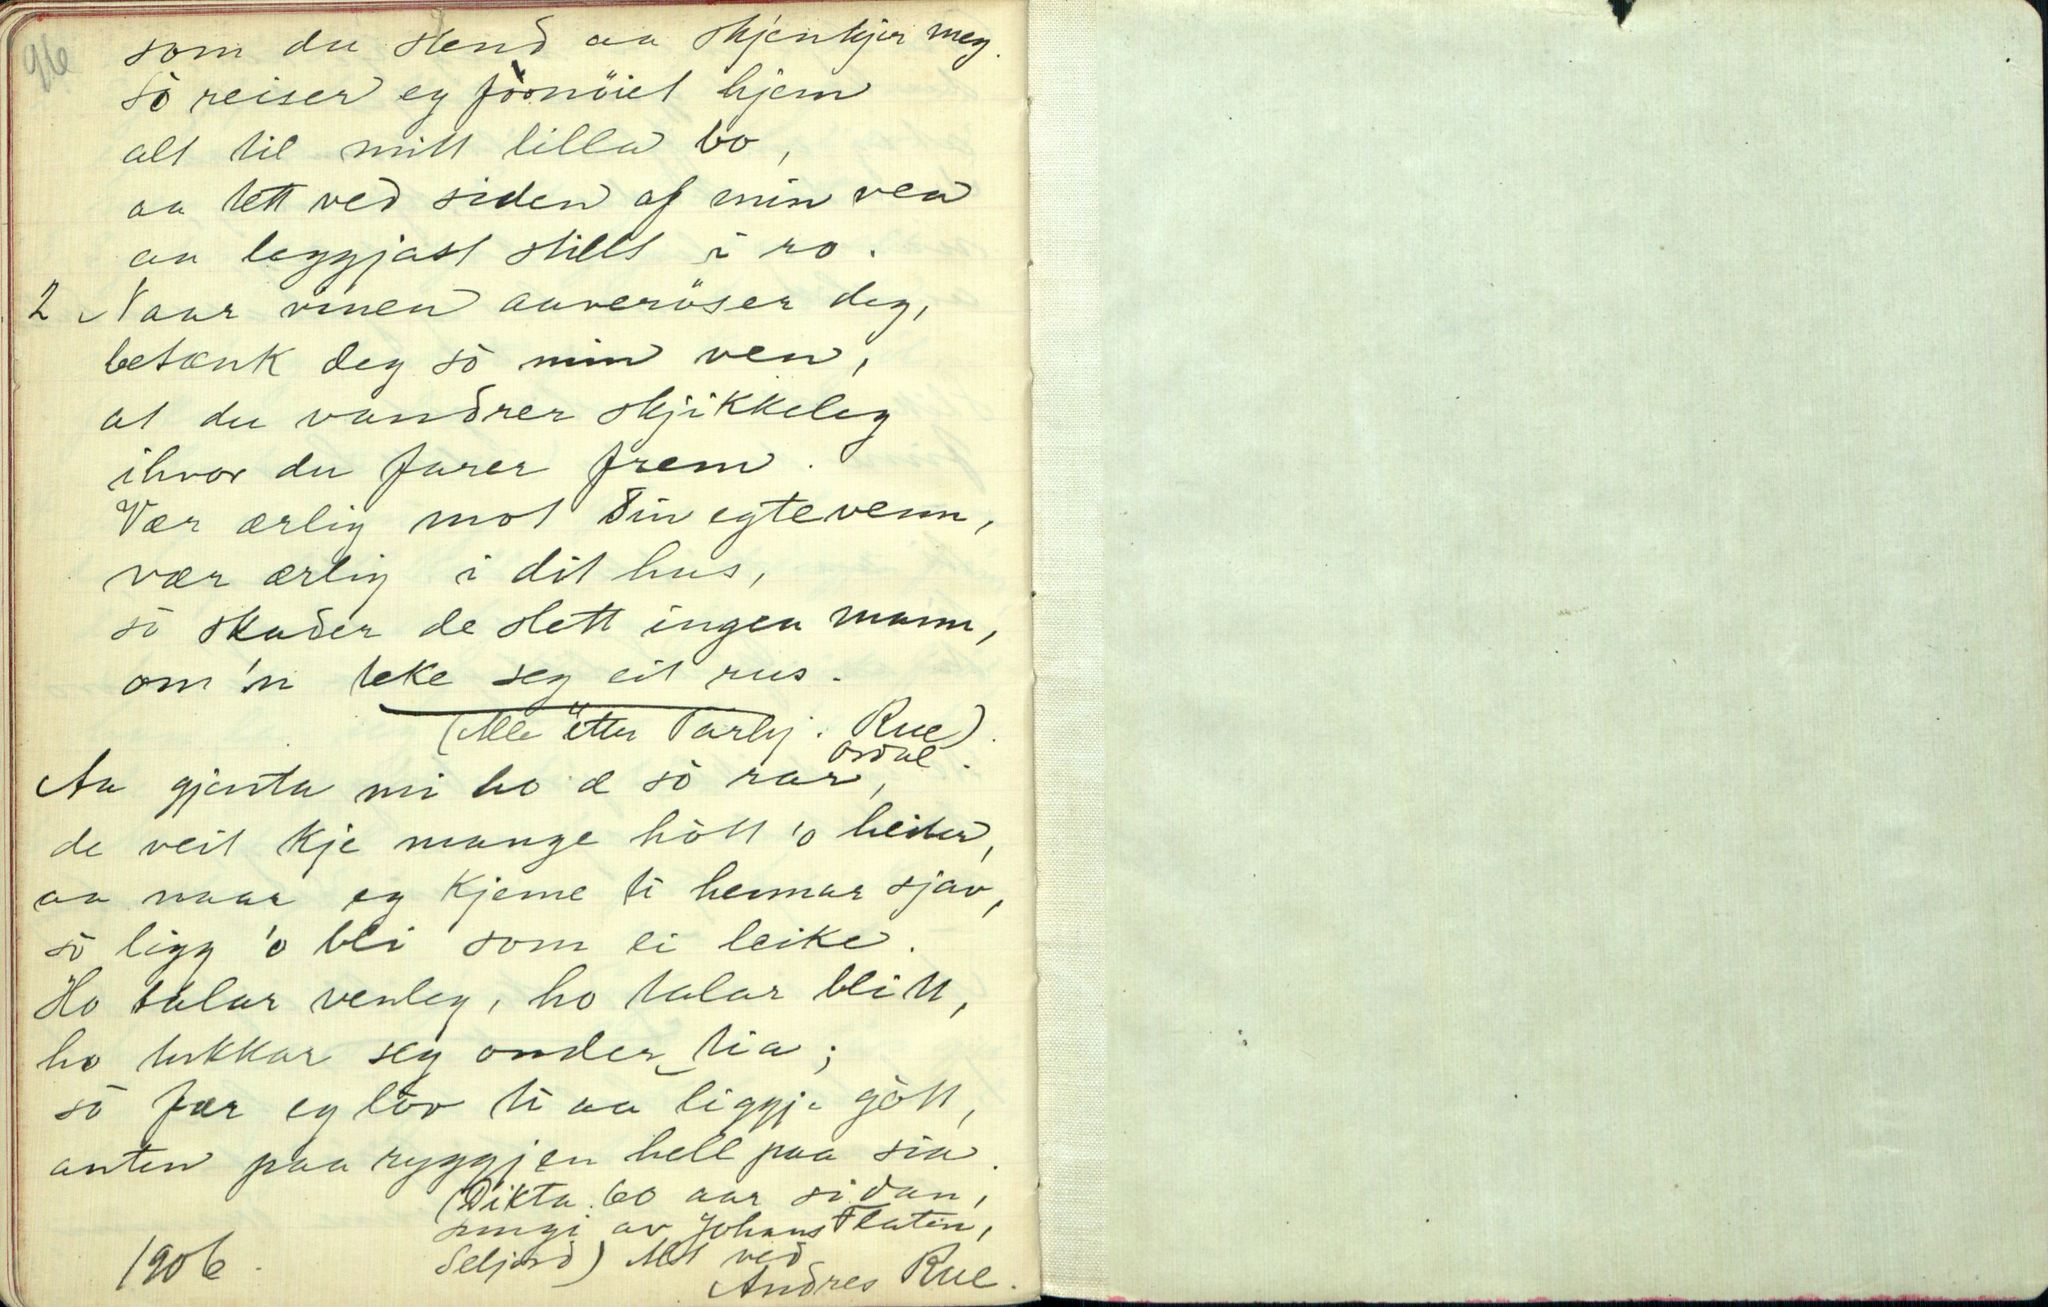 96
som du stend aa skjenkjer meg.
Sò reiser eg fòrnöiet hjem
alt til mitt lilla bo,
aa tett ved siden af min ven
aa leggjast stillt i ro.
2 Naar vinen aaveröser deg,
betænk deg sò min ven,
at du vandrer skjikkeleg
ihvor du farer frem.
Vær ærlig mot din egtevenn,
vær ærlig i dit hus,
sò skader de slett ingen mann,
om 'n teke seg eit rus.
(Alle etter Tarbj. Rue).
Ordal.
Aa gjenta mi ho æ sò rar,
de veit kje mange hòtt 'o heiter,
aa naar eg kjeme ti hennar sjav,
sò ligg 'o bli som ei leike.
Ho talar venleg, ho talar blitt,
ho tukkar seg onder tia;
sò fær eg löv ti aa liggje gòtt,
anten paa ryggjen hell paa sia.
(Dikta 60 aar sidan,
sungi av Johans Flatin,
Seljord) Alt ved
Andres Rue.
1906.